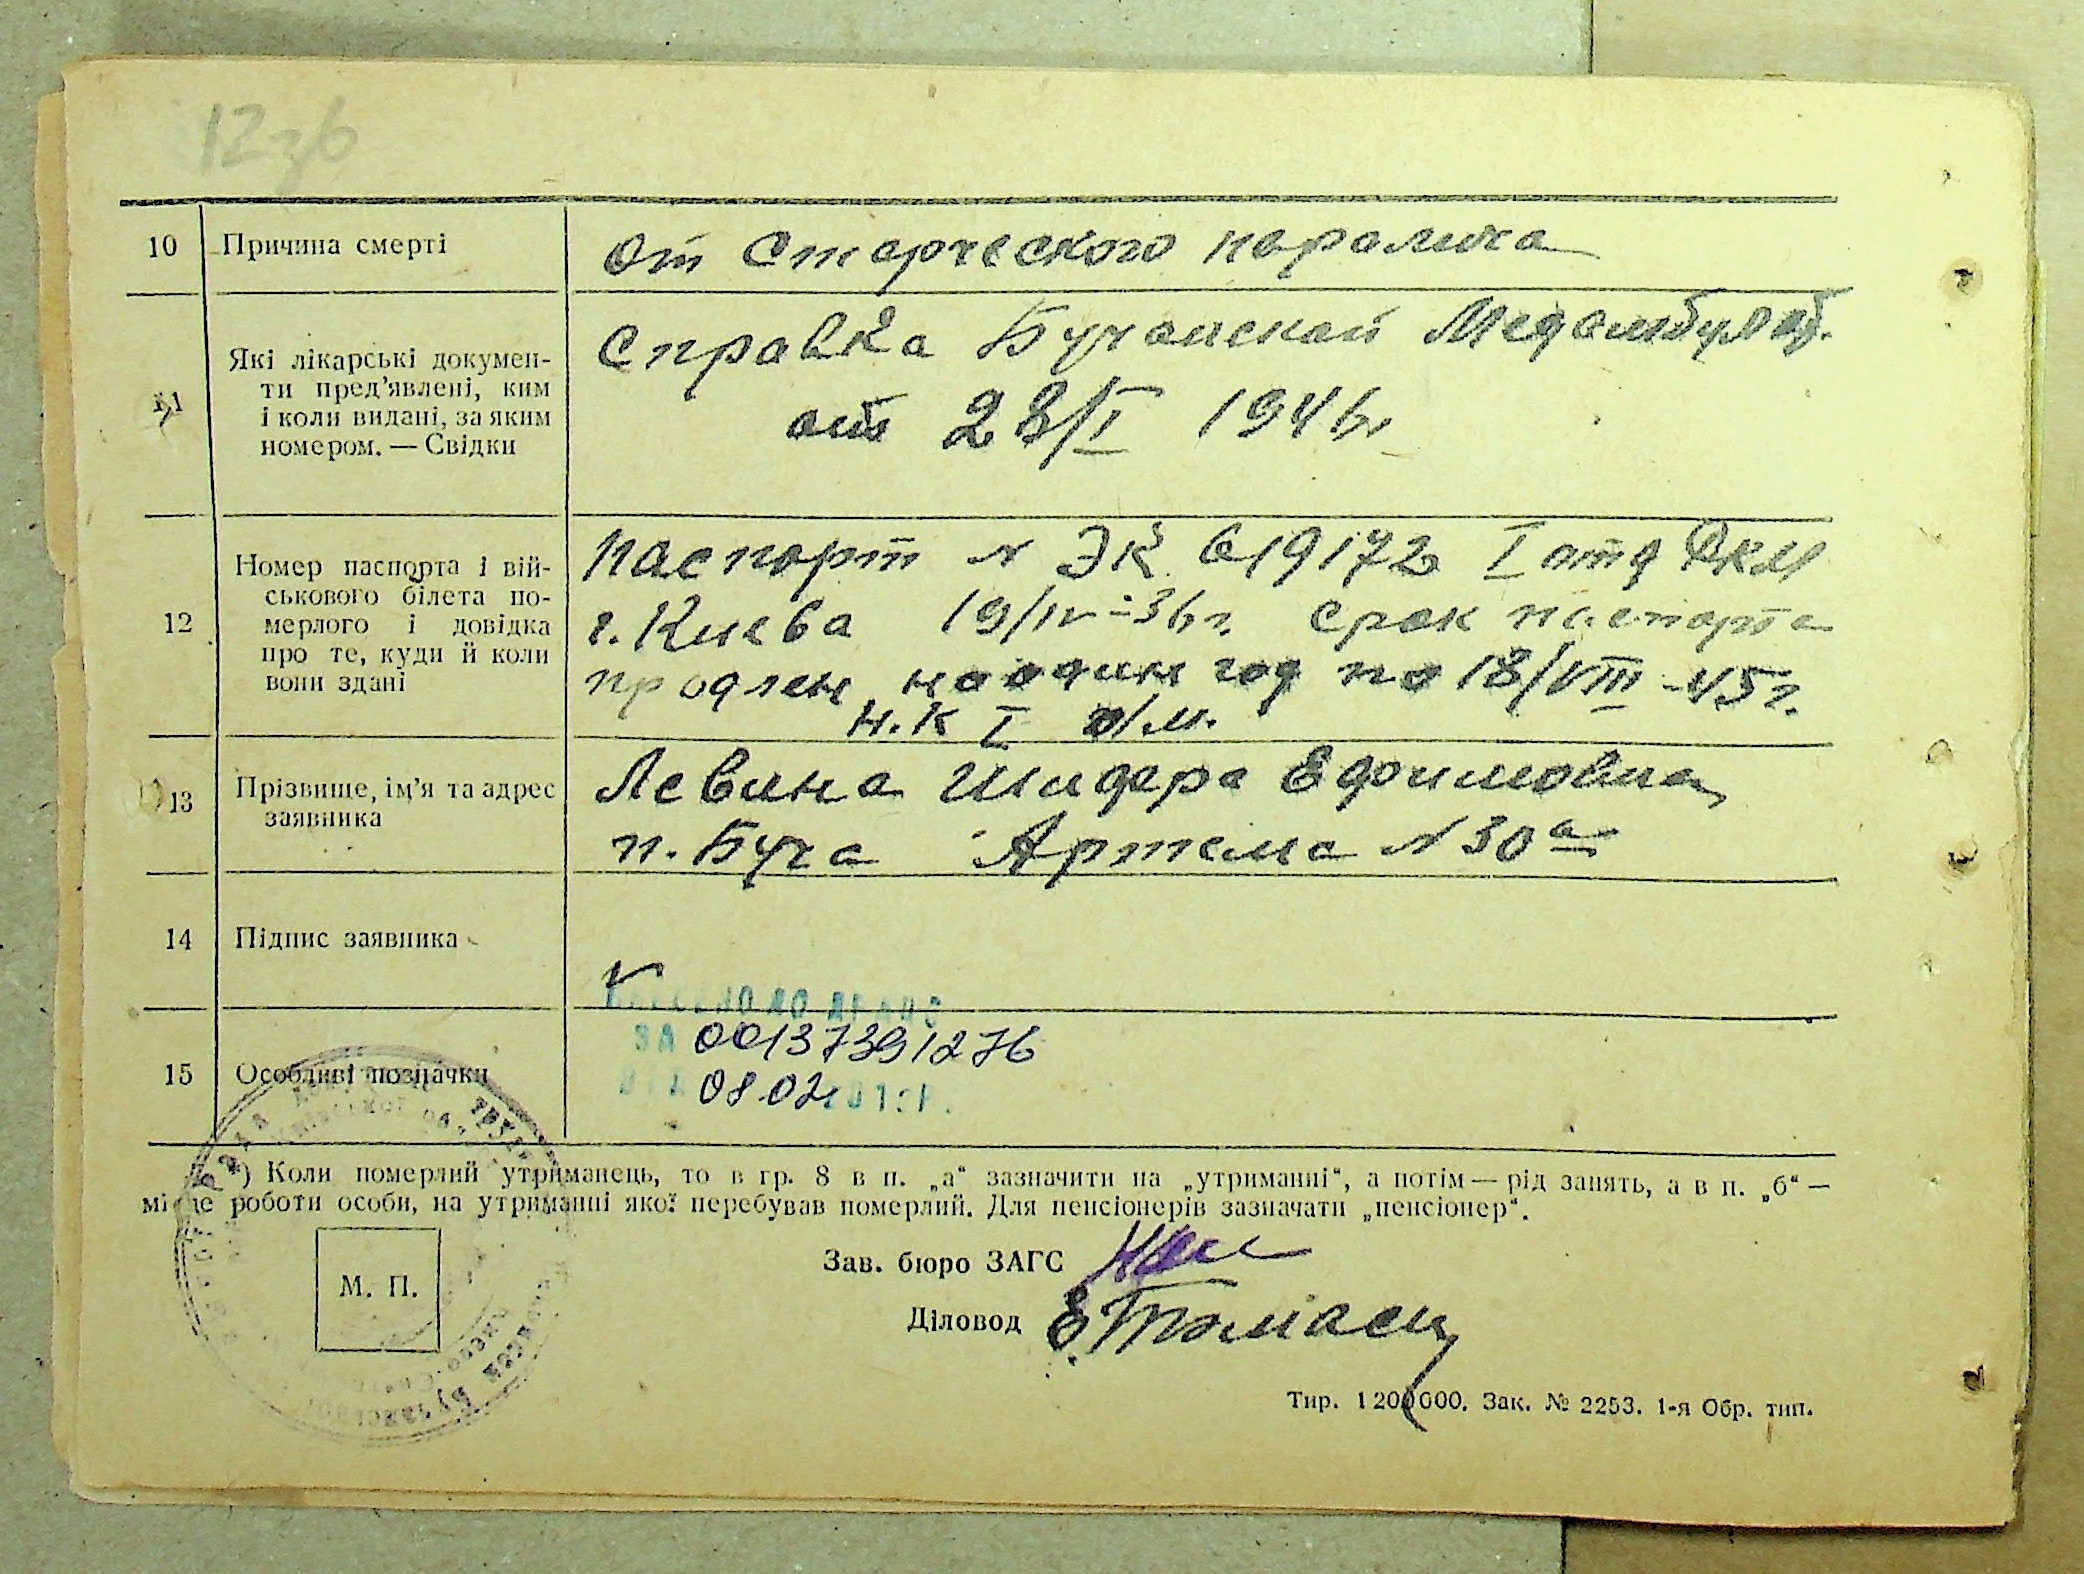 12зв
10 Причина смерті
от Старческого паралича
11 Які лікарські докумен-
ти пред’явлені, ким
і коли видані, за яким
номером. — Свідки
Справка Бучанской Медамбулат.
от 28/I 1946г
12 Номер паспорта і вій-
ськового білета по-
мерлого і довідка
про те, куди й коли
вони здані
Паспорт № ЭК 619172 I отд РКМ
г. Киева 19/IV-36г. срок паспорта
продлен на один год по 18/VIII-45г.
Н.К I о/м.
13 Прізвище, ім’я та адрес
заявника
Левина Шидера Ефимовна
п. Буча Артема N 30а
14 Підпис заявника
15 Особливі позначки
ЗА 00137391276
08.02
*) Коли померлий утриманець, то в гр. 8 в п. „а“ зазначити на „утриманні“, а потім — рід занять, а в п. „б“ —
місце роботи особи, на утриманні якої перебував померлий. Для пенсіонерів зазначати „пенсіонер“.
М. П.
Зав. бюро ЗАГС
Діловод
Тир. 1200000. Зак. № 2253. 1-я Обр. тип.